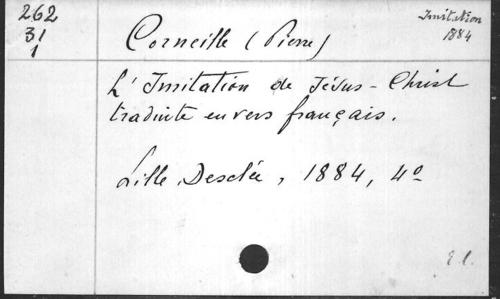 262
31
1
Imitation
1884
Corneille (Pierre)
L'Imitation de Jésus-Christ
traduite en vers français.
Lille, Desclée, 1884, 4º